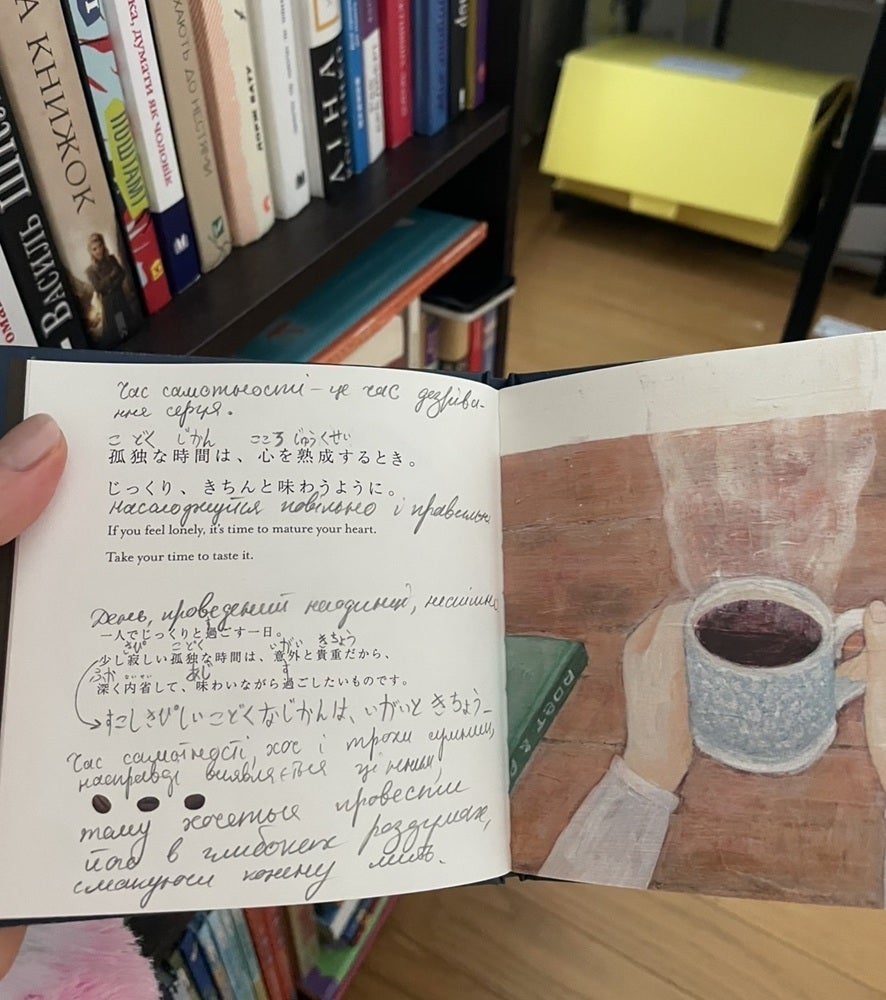 А КНИЖОК
ВАСИЛЬ
ПОШТАМТ
ка, думати як чоловік
Час самотності – це час дозріва-
ння серця.
こ どく じかん こころ じゅうくせい
孤独な時間は、心を熟成するとき。
じっくり、きちんと味わうように。
насолоджуйтся повільно і правильно
If you feel lonely, it's time to mature your heart.
Take your time to taste it.
День, проведений наодинці, неспішно
一人でじっくりと過ごす一日。
さび こどく いがい きちょう
少し寂しい孤独な時間は、意外と貴重だから、
ふか ないせい あじ す
深く内省して、味わいながら過ごしたいものです。
すこしさびしいこどくなじかんは、いがいと きちょう–
Час самотності, хоч і трохи сумний,
насправді виявляється цінним,
тому хочеться провести
його в глибоких роздумах,
смакуючи кожну мить.
POET &